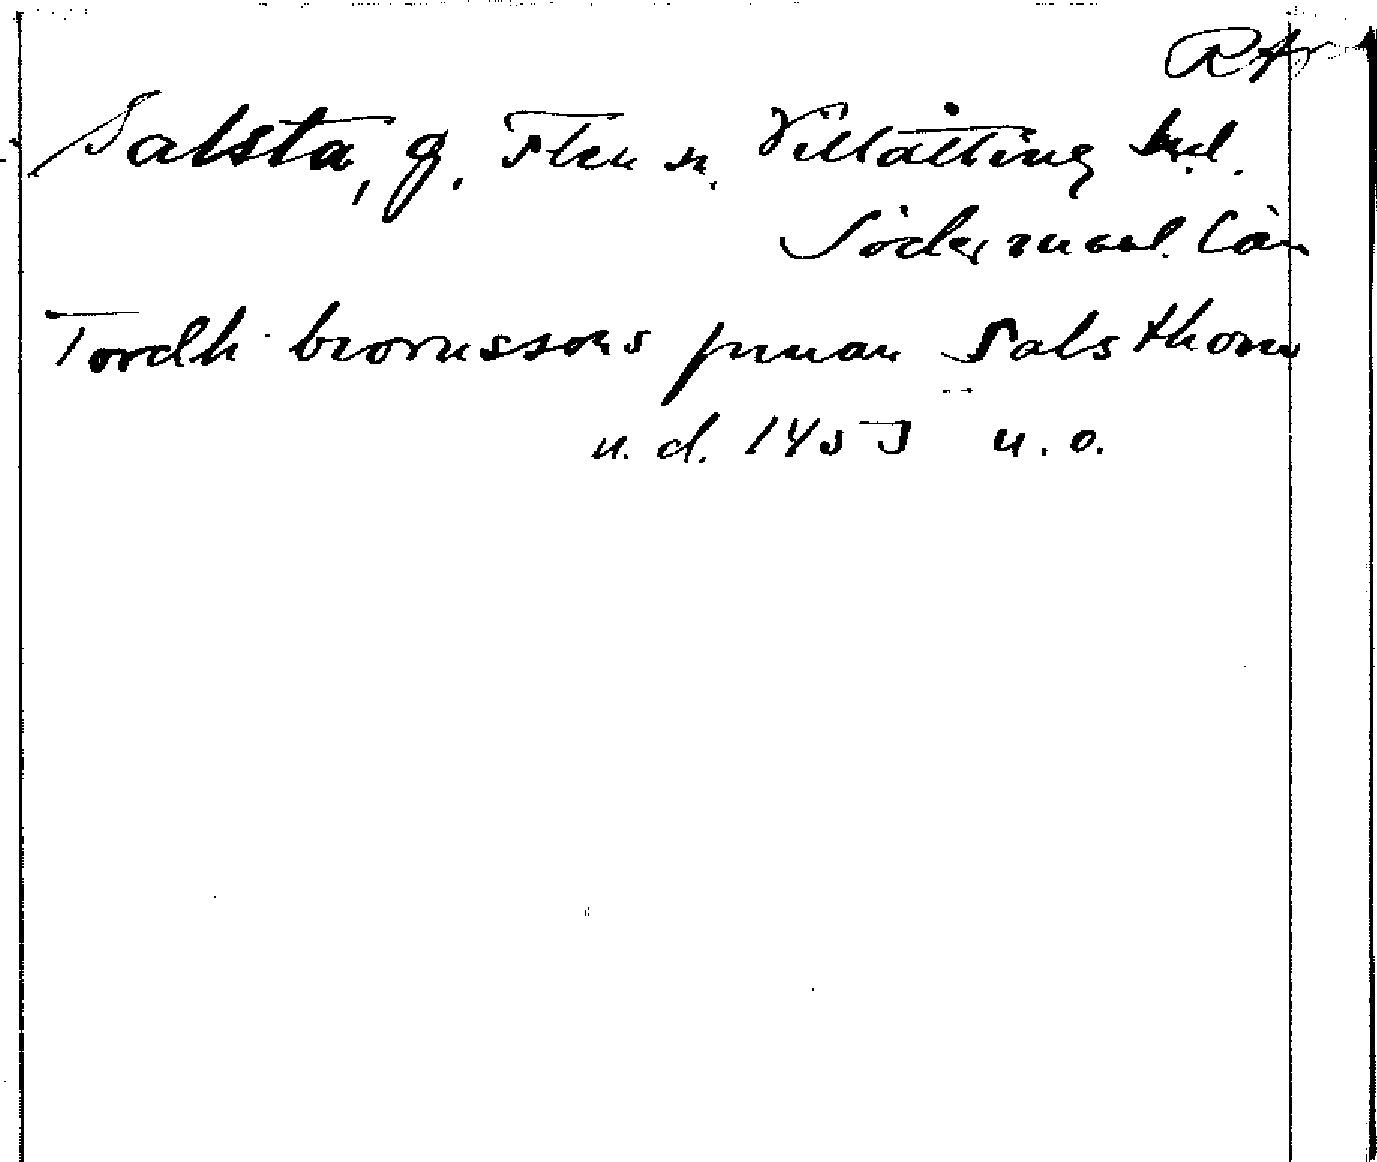 RAp
Salsta, g. Flen sn. Villåtting hd.
Södermanl. län
Tordh biornssons pruuan Salsthom
u. d. 1453 u. o.